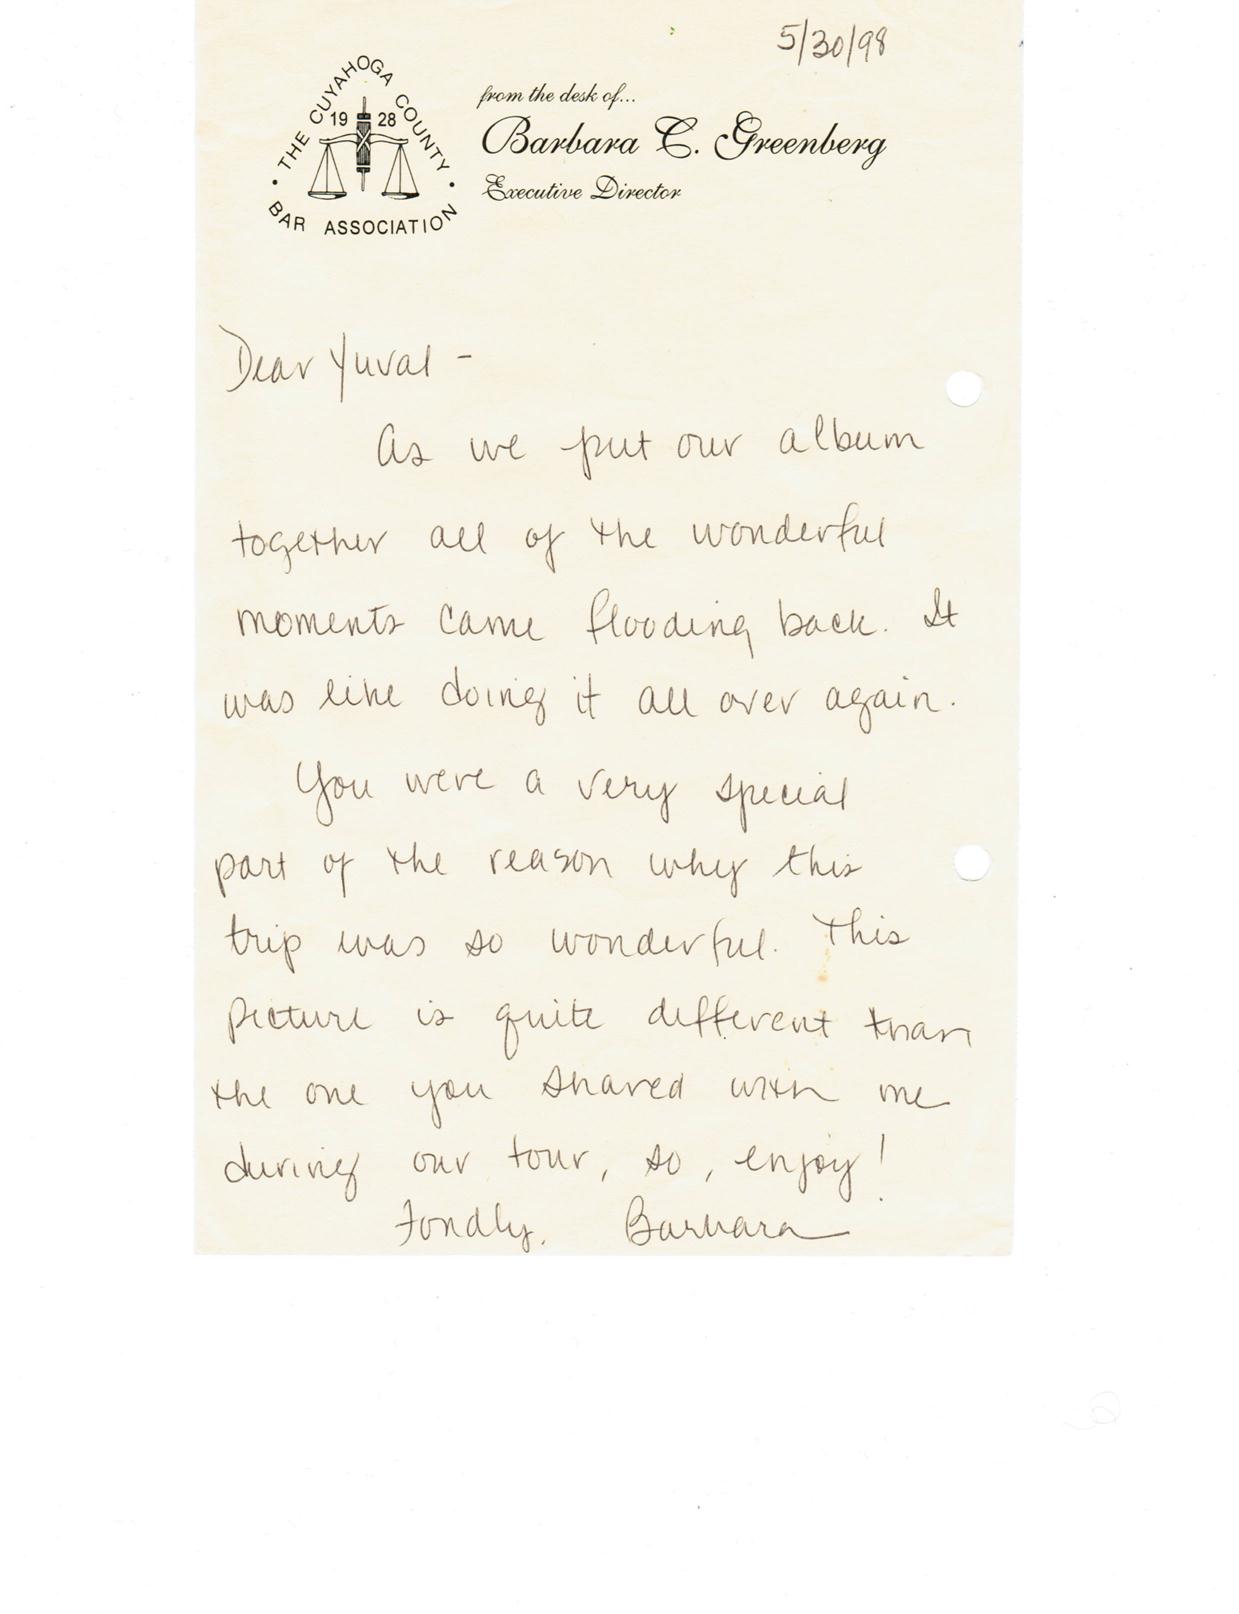 5/30/98
THE CUYAHOGA COUNTY
19 28
BAR ASSOCIATION
from the desk of...
Barbara C. Greenberg
Executive Director
Dear Yuval -
As we put our album
together all of the wonderful
moments came flooding back. It
was like doing it all over again.
You were a very special
part of the reason why this
trip was so wonderful. This
picture is quite different than
the one you shared with me
during our tour, so, enjoy!
Fondly, Barbara